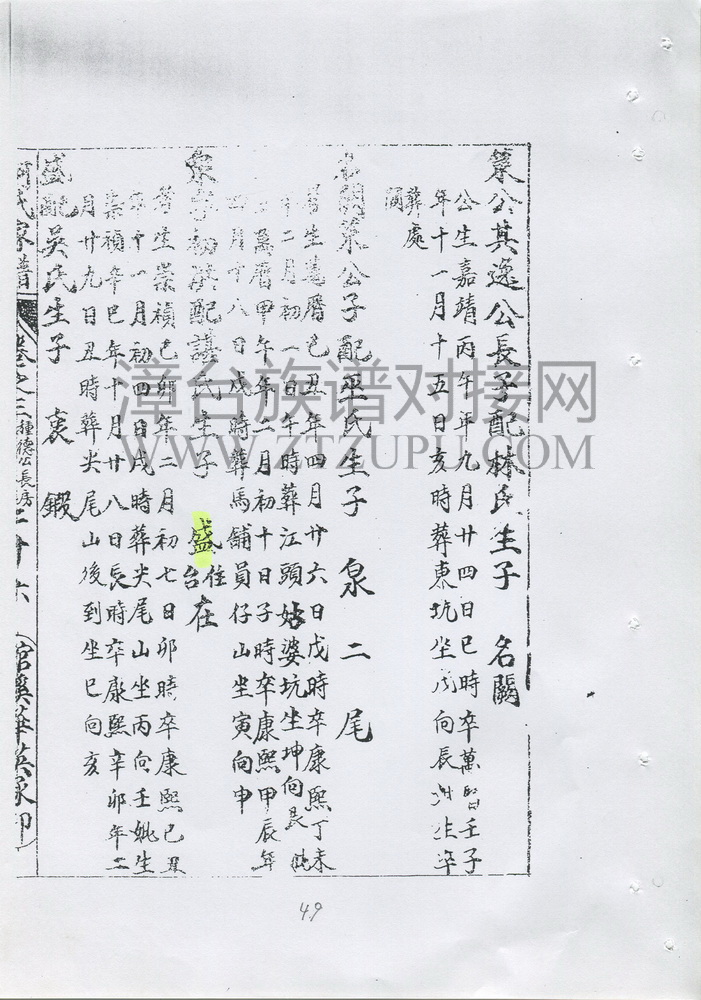 篆公其逸公長子配林氏生子 名闕
公生嘉靖丙午年九月廿四日巳時卒萬暦壬子
年十一月十五日亥時葬東坑坐戌向辰
葬處
闕
篆公子配巫氏生子 泉二尾
生萬暦己丑年四月廿六日戊時卒康熙丁未
年二月初一日午時葬江頭姑婆坑坐坤向艮妣
萬暦甲午年二月初十日子時卒康熙甲辰年
四月十八日戌時葬馬舖員仔山坐寅向申
配 氏生子 盛住台 在
生崇禎己卯年二月初七日卯時卒康熙己丑
年十一月初四日戌時葬尖尾山坐丙向壬妣生
崇禎辛巳年十月廿八日長時卒康熙辛卯年二
月廿九日丑時葬尖尾山後到坐巳向亥
盛配吳氏生子 裒 鍜
氏家譜 卷之三 種德公長房 二十六
49
漳台族谱对接网
WWW.ZTZUPU.COM